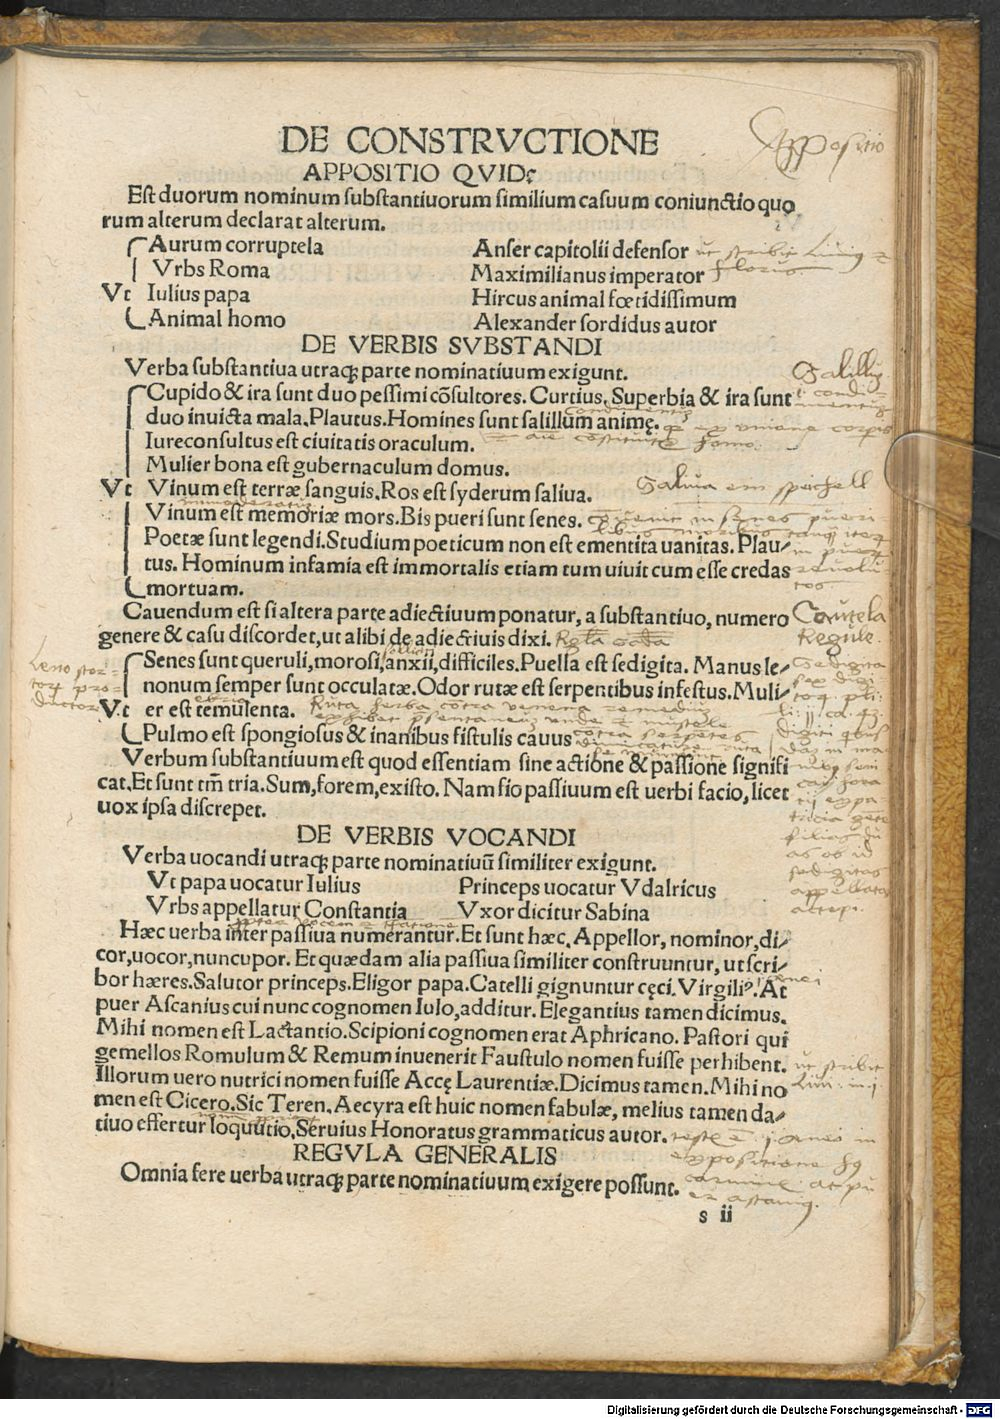 DE CONSTRVCTIONE
Appositio
APPOSITIO QVID?
Est duorum nominum substantiuorum similium casuum coniunctio quo
rum alterum declarat alterum.
Aurum corruptela Anser capitolii defensor ut scribit
Vrbs Roma Maximilianus imperator Florus
Vt Iulius papa Hircus animal fœtidissimum
Animal homo Alexander sordidus autor
DE VERBIS SVBSTANDI
Verba substantiua utraqȝ parte nominatiuum exigunt.
Cupido & ira sunt duo pessimi cõsultores. Curtius. Superbia & ira sunt
duo inuicta mala. Plautus. Homines sunt salillum animę.
Iureconsultus est ciuitatis oraculum.
Mulier bona est gubernaculum domus.
Vt Vinum est terræ sanguis. Ros est syderum saliua. Saliua
Vinum est memoriæ mors. Bis pueri sunt senes.
Poetæ sunt legendi. Studium poeticum non est ementita uanitas. Plau/
tus. Hominum infamia est immortalis etiam tum uiuit cum esse credas
mortuam.
Cauendum est si altera parte adiectiuum ponatur, a substantiuo, numero Cautela
genere & casu discordet, ut alibi de adiectiuis dixi. Regule
Senes sunt queruli, morosi, anxii, difficiles. Puella est sedigita. Manus le/ Sedigita
nonum semper sunt occulatæ. Odor rutæ est serpentibus infestus. Muli
Vt er est temulenta.
Pulmo est spongiosus & inanibus fistulis cauus
Verbum substantiuum est quod essentiam sine actione & passione signifi
cat. Et sunt tm̃ tria. Sum, forem, existo. Nam fio passiuum est uerbi facio, licet
uox ipsa discrepet.
DE VERBIS VOCANDI
Verba uocandi utraqȝ parte nominatiuũ similiter exigunt.
Vt papa uocatur Iulius Princeps uocatur Vdalricus
Vrbs appellatur Constantia Vxor dicitur Sabina
Hæc uerba inter passiua numerantur. Et sunt hæc. Appellor, nominor, di/
cor, uocor, nuncupor. Et quædam alia passiua similiter construuntur, ut scri/
bor hæres. Salutor princeps. Eligor papa. Catelli gignuntur cęci. Virgiliꝰ. At
puer Ascanius cui nunc cognomen Iulo, additur. Elegantius tamen dicimus.
Mihi nomen est Lactantio. Scipioni cognomen erat Aphricano. Pastori qui
gemellos Romulum & Remum inuenerit Faustulo nomen fuisse perhibent. ut scribit
Illorum uero nutrici nomen fuisse Accę Laurentiæ. Dicimus tamen. Mihi no
men est Cicero. Sic Teren. Aecyra est huic nomen fabulæ, melius tamen da/
tiuo effertur loquutio, Seruius Honoratus grammaticus autor.
REGVLA GENERALIS
Omnia fere uerba utraqȝ parte nominatiuum exigere possunt.
s ii
Digitalisierung gefördert durch die Deutsche Forschungsgemeinschaft - DFG